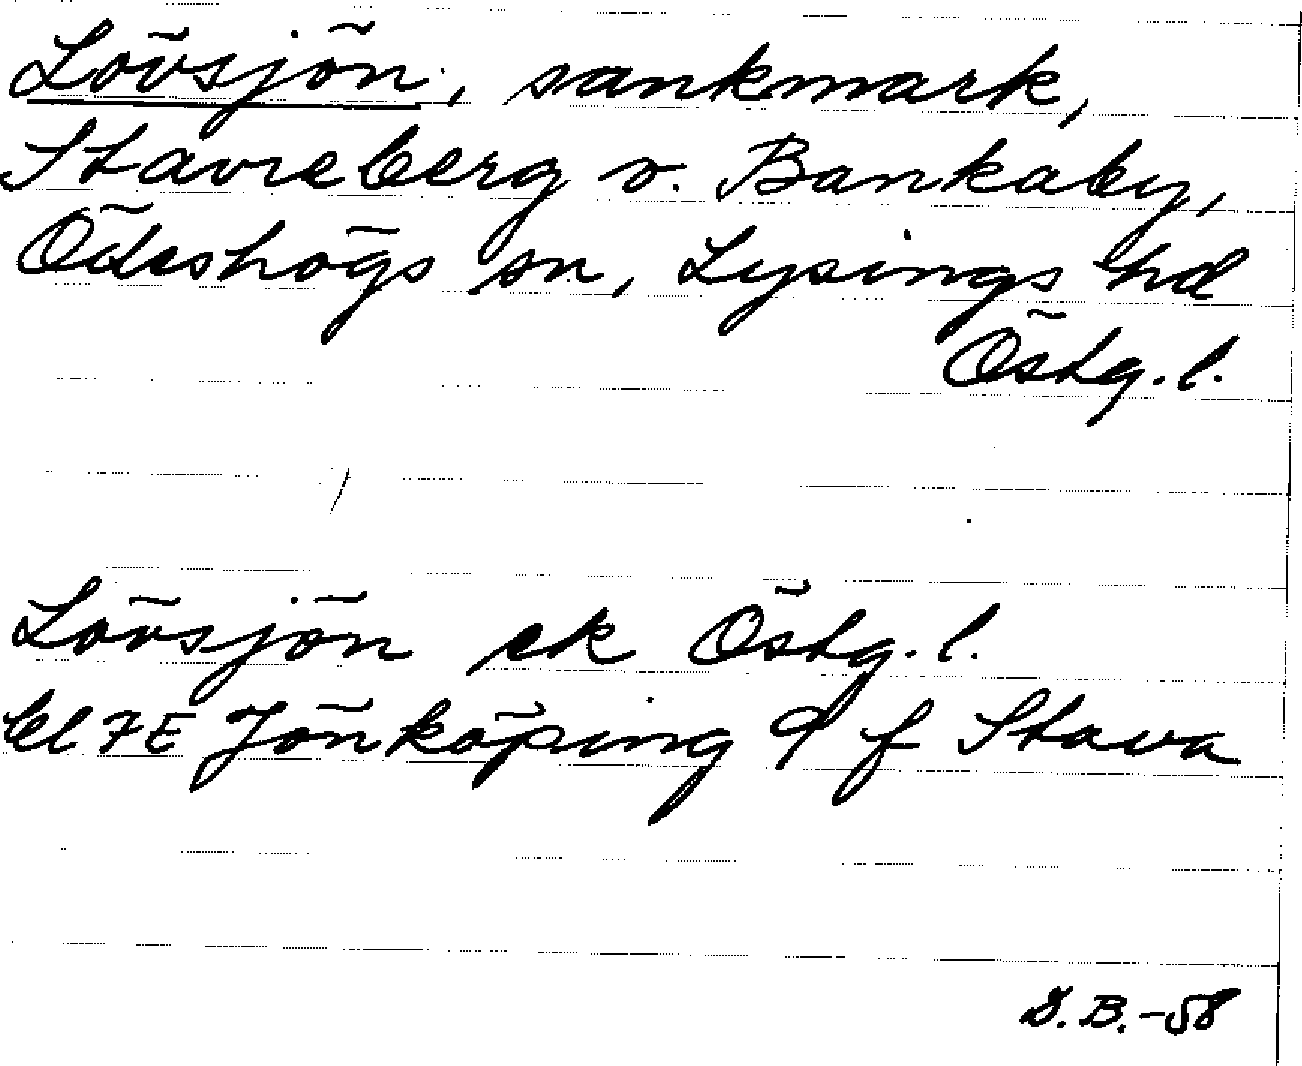 Lövsjön, sankmark,
Stavreberg v. Bankaby,
Ödeshögs sn, Lysings hd
Östg. l.
Lövsjön ek Östg. l.
bl 7E Jönköping 9 f Stava
B.-58